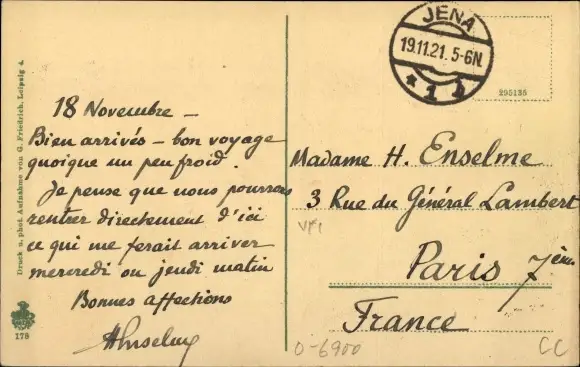 18 Novembre –
Bien arrivés – bon voyage
quoique un peu froid.
Je pense que nous pourrons
rentrer directement d'ici
ce qui me ferait arriver
mercredi ou jeudi matin
Bonnes affections
HEnselme
JENA
19.11.21. 5-6N.
* 1 b
295135
Madame H. Enselme
3 Rue du Général Lambert
VFI
Paris 7ème
France
0-6900
CC
Druck u. phot. Aufnahme von G. Friedrich, Leipzig 4.
178